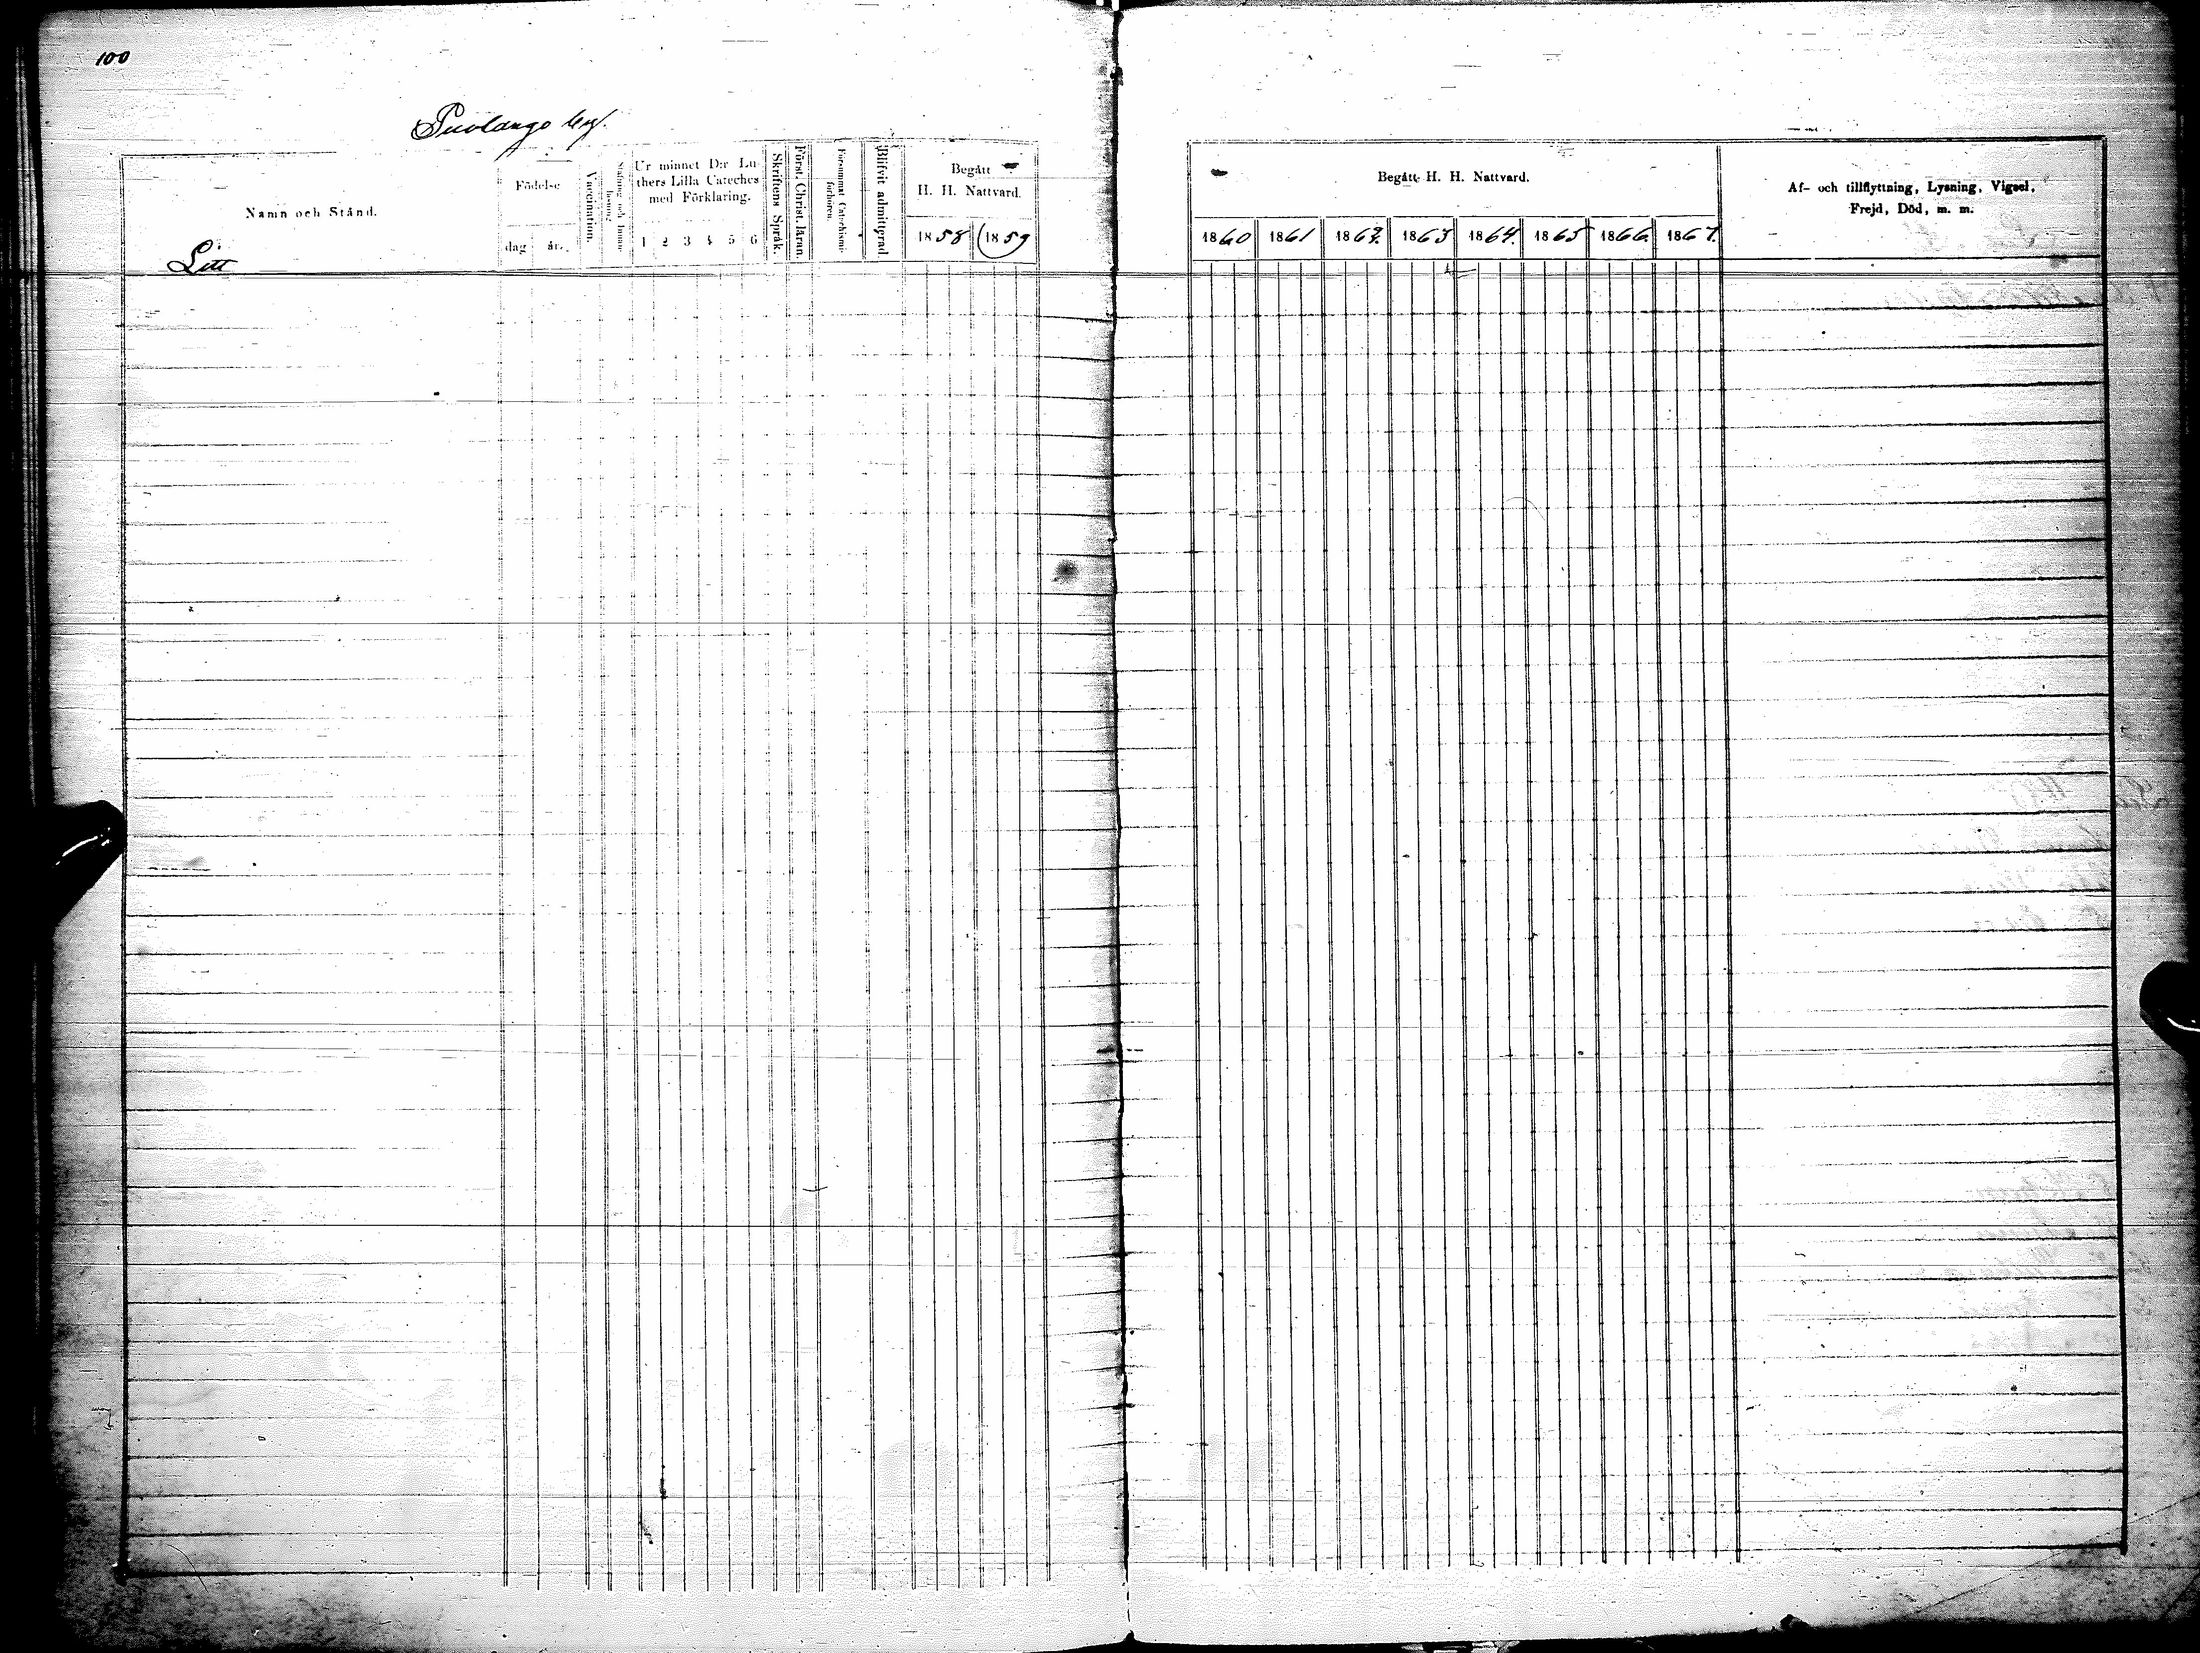 100
Puolango by.
Namn och Stånd.
Födelse
dag
år.
Vaccination.
Stafning och Innan-
läsning.
Ur minnet D:r Lu-
thers Lilla Cateches
med Förklaring.
1 2 3 4 5 6
Skriftens Språk.
Först. Christ. läran.
Försummat Catechismi-
förhören.
Blifvit admitterad.
Begått
H. H. Nattvard.
1858 1859
Litt
Begått H. H. Nattvard.
1860 1861 1862. 1863 1864. 1865 1866. 1867.
Af- och tillflyttning, Lysning, Vigsel,
Frejd, Död, m. m.